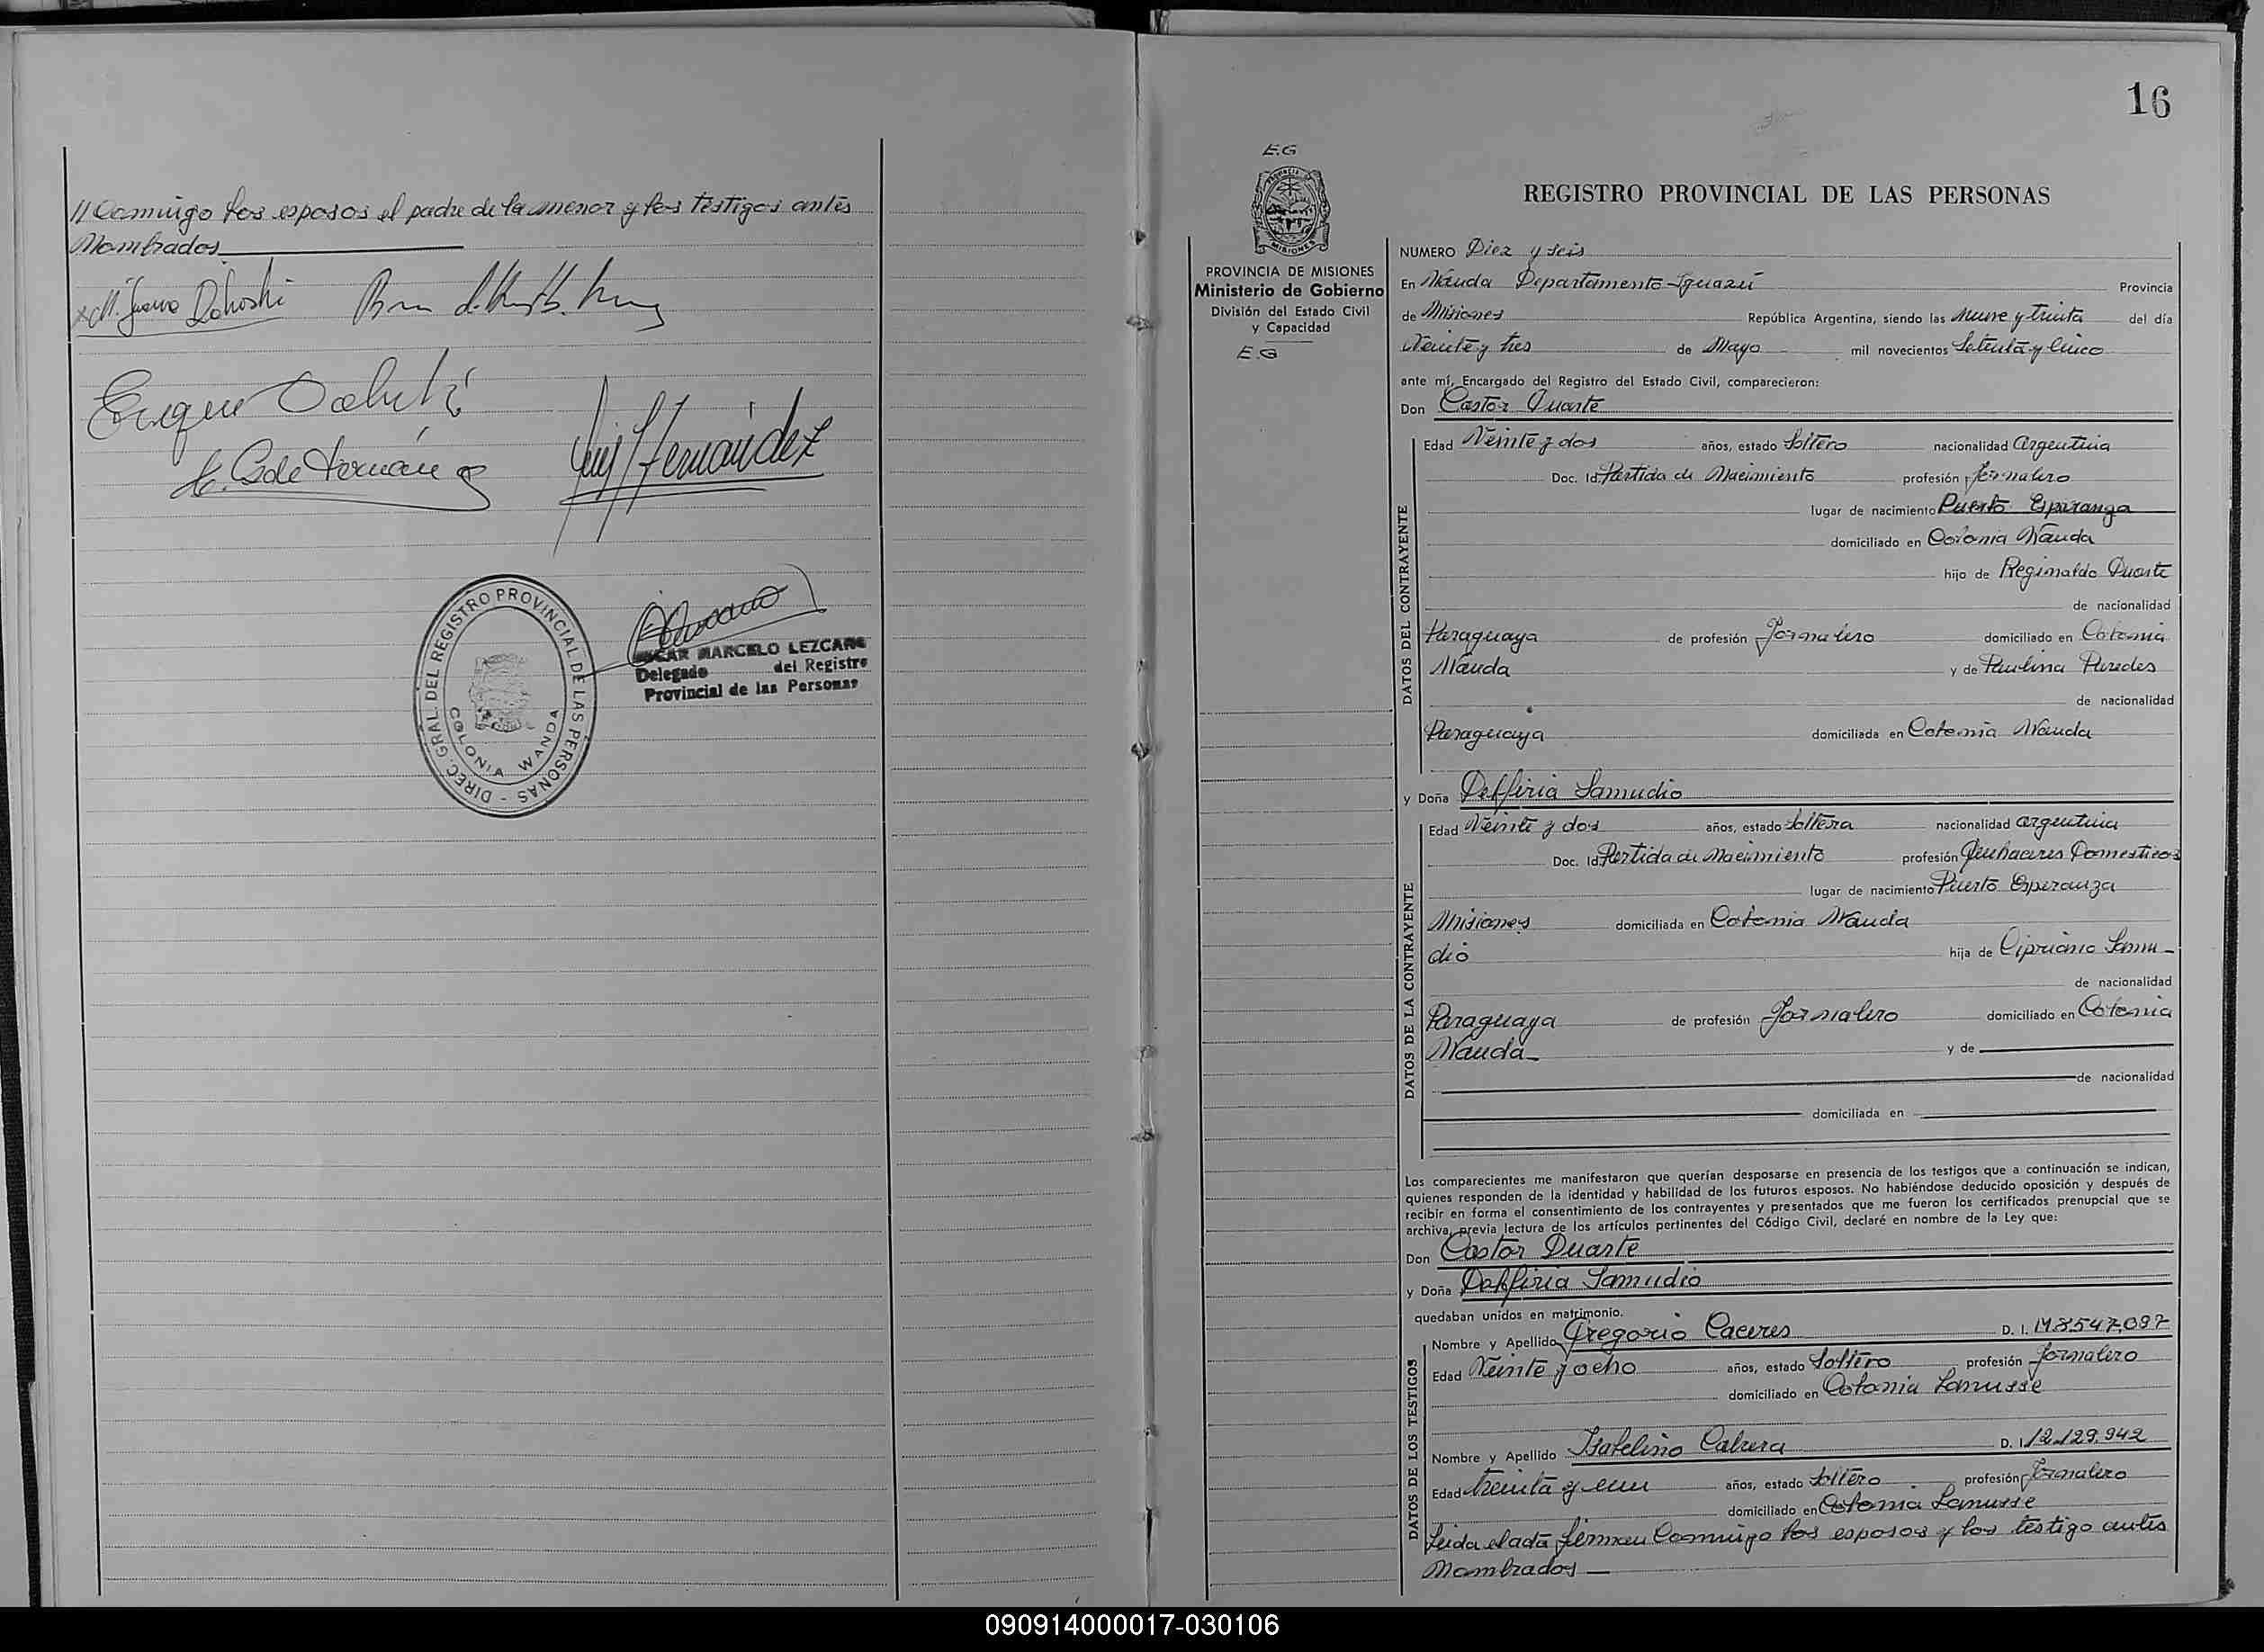 // Comuigo los esposos el padre de la menor y los testigos antes
Nombrados
Enrique
H. G de Fernández
Luis Fernández
DIREC. GRAL. DEL REGISTRO PROVINCIAL DE LAS PERSONAS -
COLONIA WANDA
OSCAR MARCELO LEZCANO
Delegado del Registro
Provincial de las Personas
16
E.G
PROVINCIA DE MISIONES
Ministerio de Gobierno
División del Estado Civil
y Capacidad
E.G
REGISTRO PROVINCIAL DE LAS PERSONAS
NUMERO Diez y seis
En Wanda Departamento Iguazú Provincia
de Misiones República Argentina, siendo las Nueve y treinta del día
Veinte y tres de Mayo mil novecientos Setenta y Cinco
ante mí, Encargado del Registro del Estado Civil, comparecieron:
Don Castor Duarte
DATOS DEL CONTRAYENTE
Edad Veinte y dos años, estado Soltero nacionalidad argentina
Doc. Id. Partida de Nacimiento profesión Jornalero
lugar de nacimiento Puerto Esperanza
domiciliado en Colonia Wanda
hijo de Reginaldo Duarte
de nacionalidad
Paraguaya de profesión Jornalero domiciliado en Colonia
Wanda y de Paulina Paredes
de nacionalidad
Paraguaya domiciliada en Colonia Wanda
y Doña Delfiria Samudio
DATOS DE LA CONTRAYENTE
Edad Veinte y dos años, estado Soltera nacionalidad argentina
Doc. Id. Partida de Nacimiento profesión Quehaceres Domesticos
lugar de nacimiento Puerto Esperanza
Misiones domiciliada en Colonia Wanda
dio hija de Cipriano Samu-
de nacionalidad
Paraguaya de profesión Jornalero domiciliado en Colonia
Wanda y de
de nacionalidad
domiciliada en
Los comparecientes me manifestaron que querían desposarse en presencia de los testigos que a continuación se indican,
quienes responden de la identidad y habilidad de los futuros esposos. No habiéndose deducido oposición y después de
recibir en forma el consentimiento de los contrayentes y presentados que me fueron los certificados prenupcial que se
archiva, previa lectura de los artículos pertinentes del Código Civil, declaré en nombre de la Ley que:
Don Castor Duarte
y Doña Delfiria Samudio
quedaban unidos en matrimonio.
DATOS DE LOS TESTIGOS
Nombre y Apellido Gregorio Caceres D. I. M8547,097
Edad Veinte y ocho años, estado Soltero profesión Jornalero
domiciliado en Colonia Lanusse
Nombre y Apellido Isabelino Cabrera D. I. 12.129.942
Edad treinta y un años, estado Soltero profesión Jornalero
domiciliado en Colonia Lanusse
Leida el acta firman Comuigo los esposos y los testigo antes
Nombrados
090914000017-030106